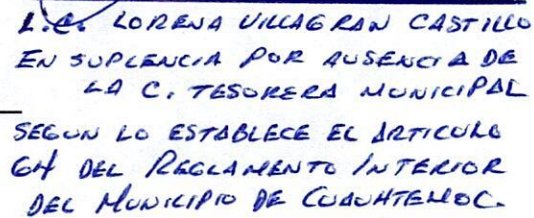 L.C. LORENA VILLAGRAN CASTILLO
EN SUPLENCIA POR AUSENCIA DE
LA C. TESORERA MUNICIPAL
SEGUN LO ESTABLECE EL ARTICULO
64 DEL REGLAMENTO INTERIOR
DEL MUNICIPIO DE CUAUHTEMOC.